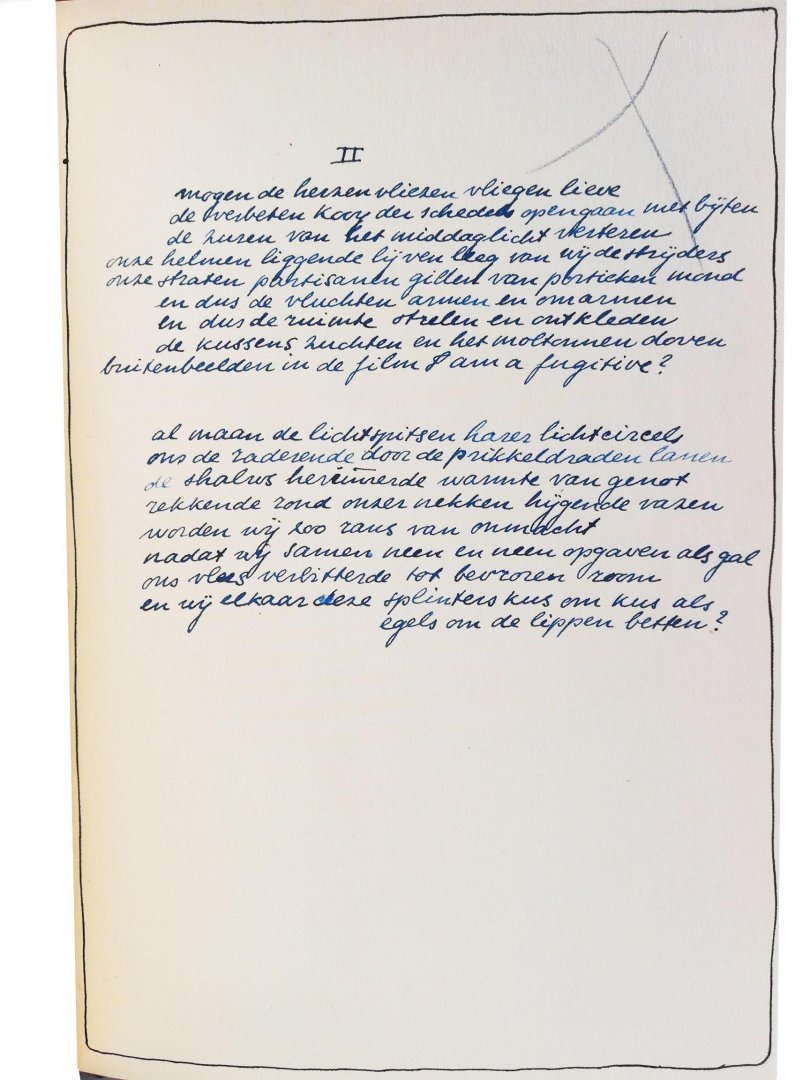 II
mogen de herzenvliezen vliegen lieve
de verbeten kooy der schedels opengaan met bijten
de zuren van het middaglicht verteren
onze helmen liggende lijven leeg van wij de strijders
onze straten partisanen gillen van portieken mond
en dus de vluchten armen en omarmen
en dus de ruimte strelen en ontkleden
de kussens zuchten en het moltonnen doven
buitenbeelden in de film I am a fugitive?
al maan de lichtspitsen harer lichtcircels
ons de raderende door de prikkeldraden lanen
de shalws herinnerde warmte van genot
rekkende rond onzer nekken hijgende vazen
worden wij zoo rans van onmacht
nadat wij samen neen en neen opgaven als gal
ons vlees verbitterde tot bevroren room
en wij elkaar deze splinters kus om kus als
egels om de lippen betten?